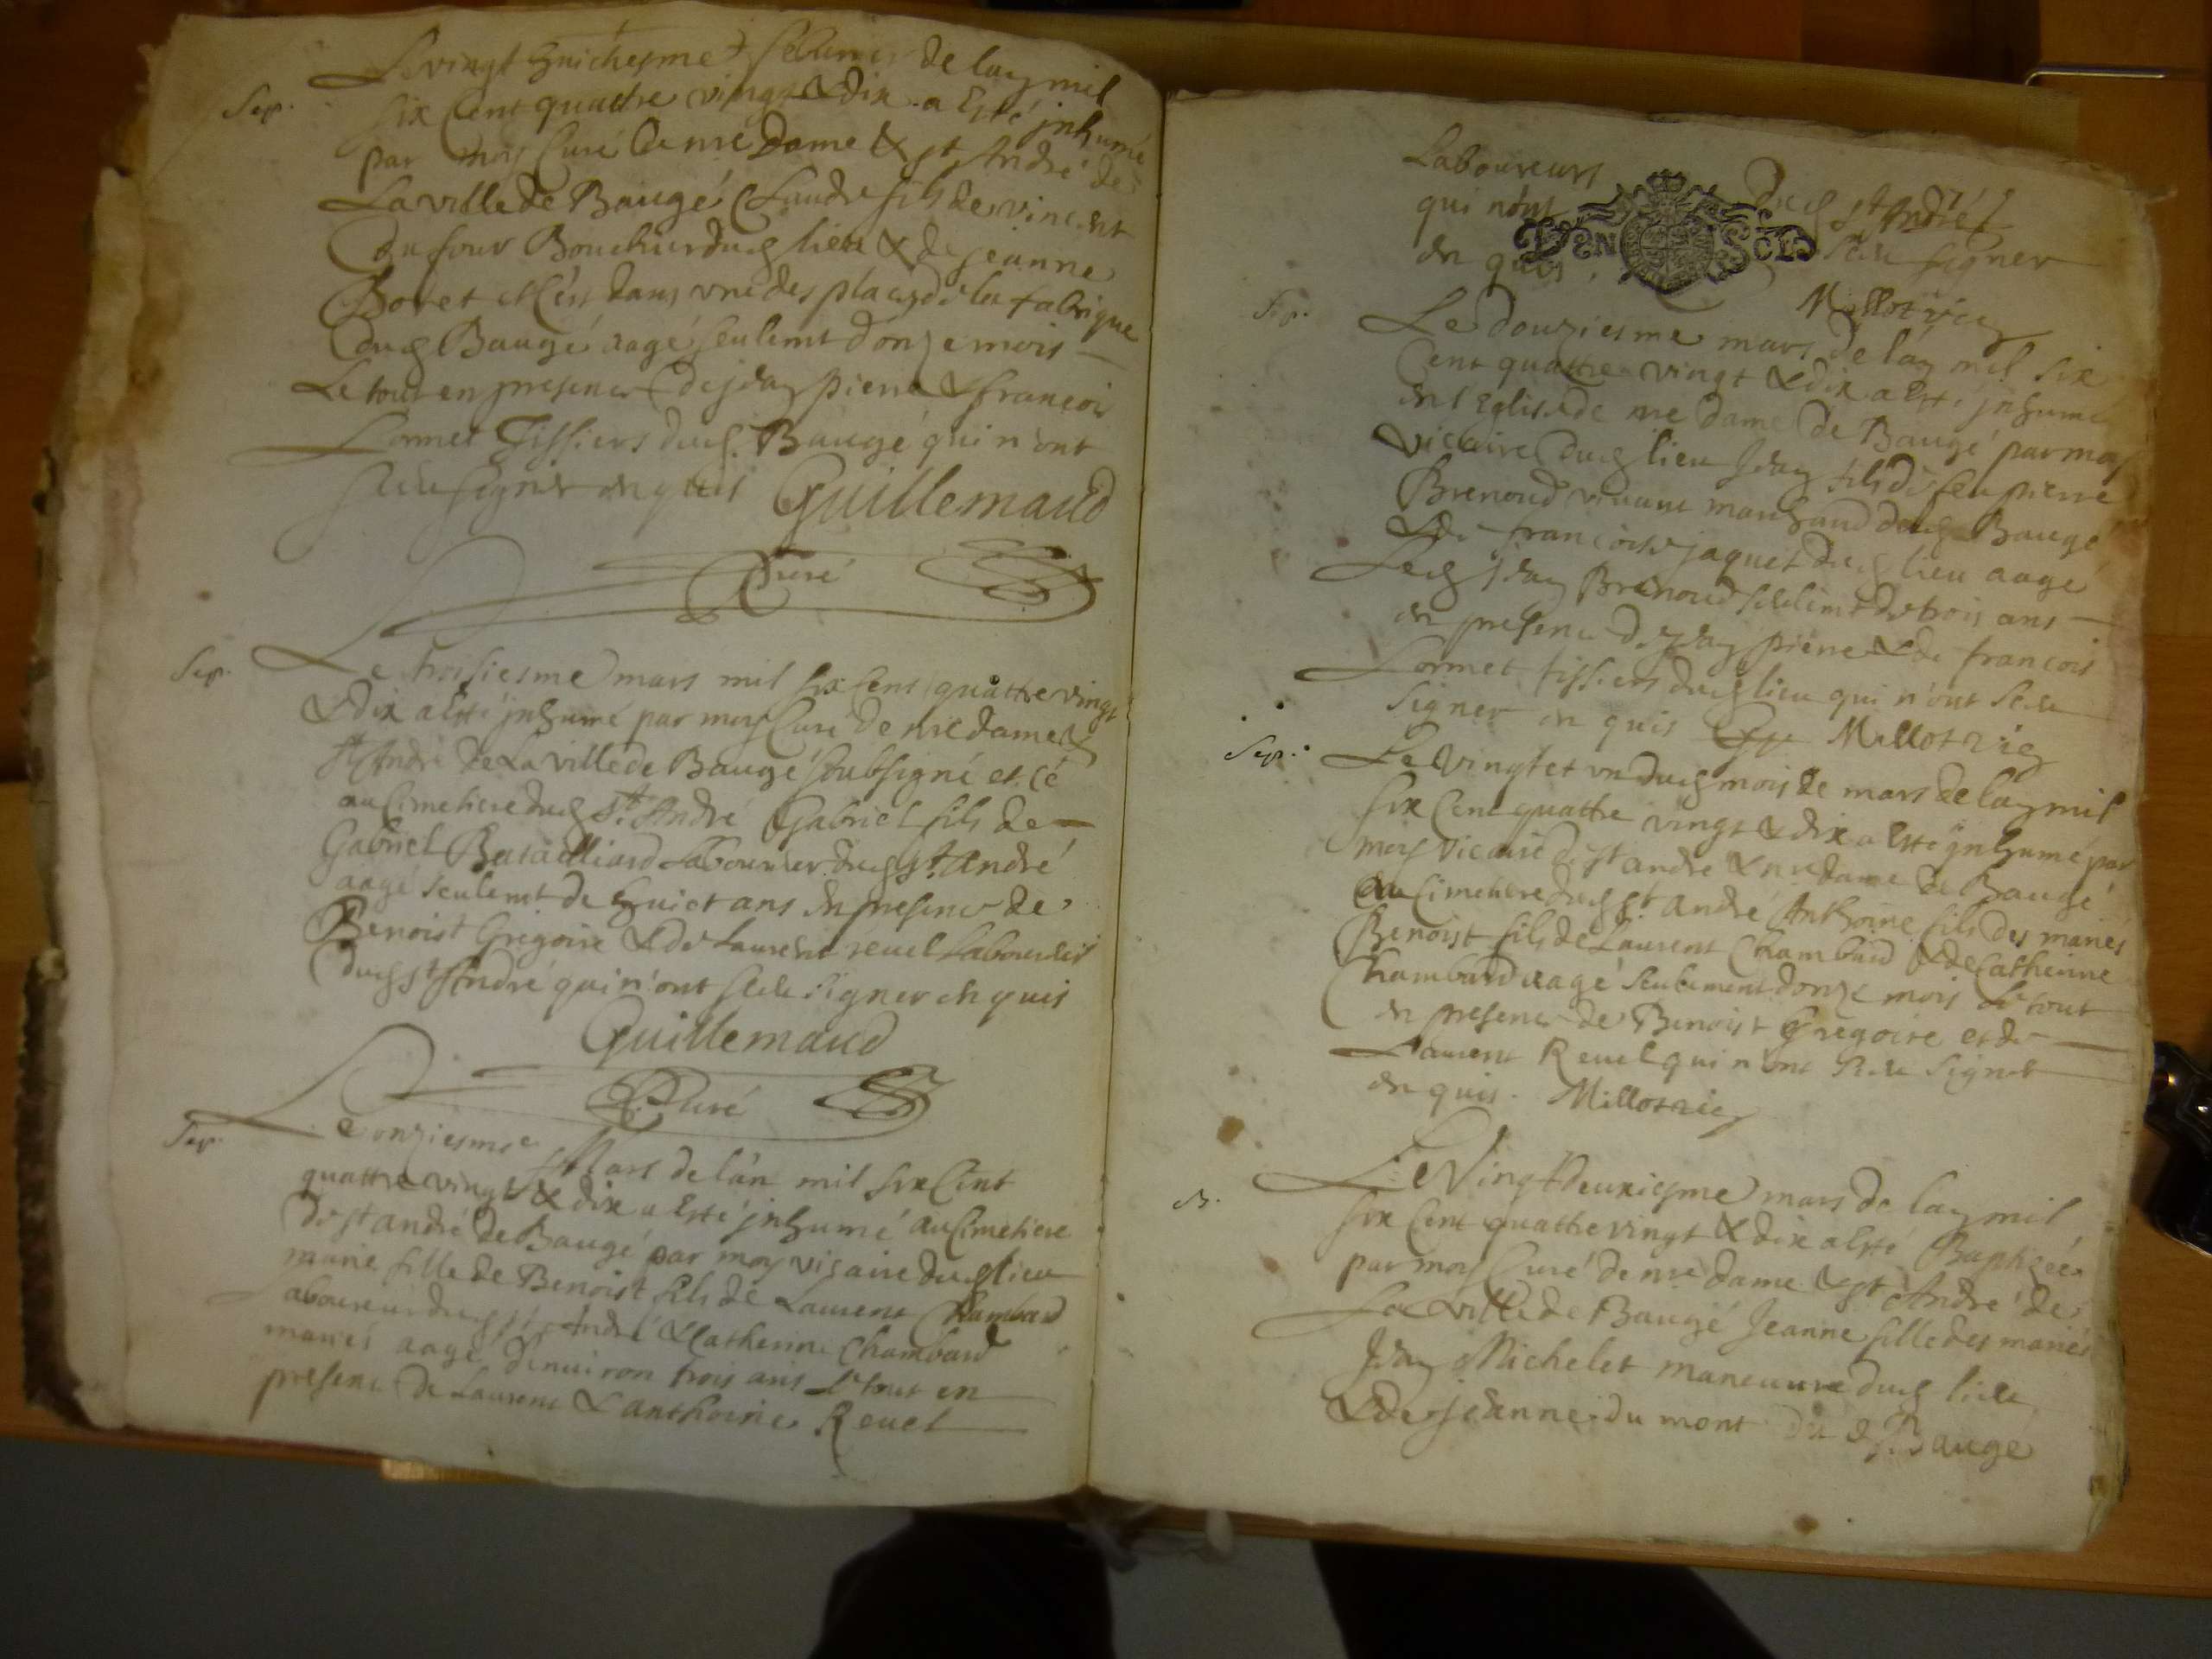 Sep.
Le vingt huictiesme febvrier de lan mil
six cent quattre vingt & dix a esté inhumé
par moy Curé de nre Dame & st André de
La ville de Baugé Claude fils de vincent
du four Bouchier dud lieu & de jeanne
Boret et c'est dans vne des places de la fabrique
dud Baugé aagé seulemt d'onze mois
Le tout en presence de jean pierre & françois
Lormet Tissiers dud. Baugé qui n'ont
sceu signer enquis Guillemaud
Curé
Sep.
Le troisiesme mars mil six cent quattre vingt
& dix a esté inhumé par moy Curé de nre dame &
st André de La ville de Baugé soubsigné et ce
au Cimetiere dud st. André Gabriel fils de
Gabriel Bataillard Laboureur dud st. André
aagé seulemt de huict ans en presence de
Benoist Gregoire & de Laurent reuel Laboureurs
dud st André qui n'ont sceu signer enquis
Guillemaud
Curé
Sep.
Le onziesme Mars de l'an mil six Cent
quattre vingt & dix a esté inhumé au Cimetiere
de st andré de Baugé par moy vicaire dud lieu
marie fille de Benoist fils de Laurent Chambard
laboureur dud st André & Catherine Chambard
mariés aagé d'enuiron trois ans le tout en
presence de Laurent & anthoine Reuel
Laboureurs dud st André
qui n'ont sceu signer
enquis. Millot vic
VEN SOLS
Sep.
Le douziesme mars de lan mil six
Cent quattre vingt & dix a esté inhumé
en l'Eglise de nre dame de Baugé par moy
vicaire dud lieu jean fils de feu pierre
Brenoud viuant marchand dud Baugé
& de françoise jaquet dud lieu aagé
Led jean Brenoud seulemt de trois ans
en presence de jean pierre & de françois
Lormet tissiers dud lieu qui n'ont sceu
signer enquis Millot vic
Sep.
Le vingt et vn dud mois de mars de lan mil
six cent quattre vingt & dix a esté inhumé par
moy vicaire de st andré & nre dame de Baugé
au Cimetiere dud st andré Anthoine fils des mariés
Benoist fils de Laurent Chambard & de Catherine
Chambard aagé seulement d'onze mois le tout
en presence de Benoist Gregoire et de
Laurent Reuel qui n'ont sceu signer
enquis. Millot vic
B.
Le Vingt deuxiesme mars de lan mil
six cent quattre vingt & dix a esté Baptizée
par moy Curé de nre dame & st André de
La ville de Baugé Jeanne fille des mariés
Jean Michelet maneuure dud lieu
& de jeanne du mont dud Baugé